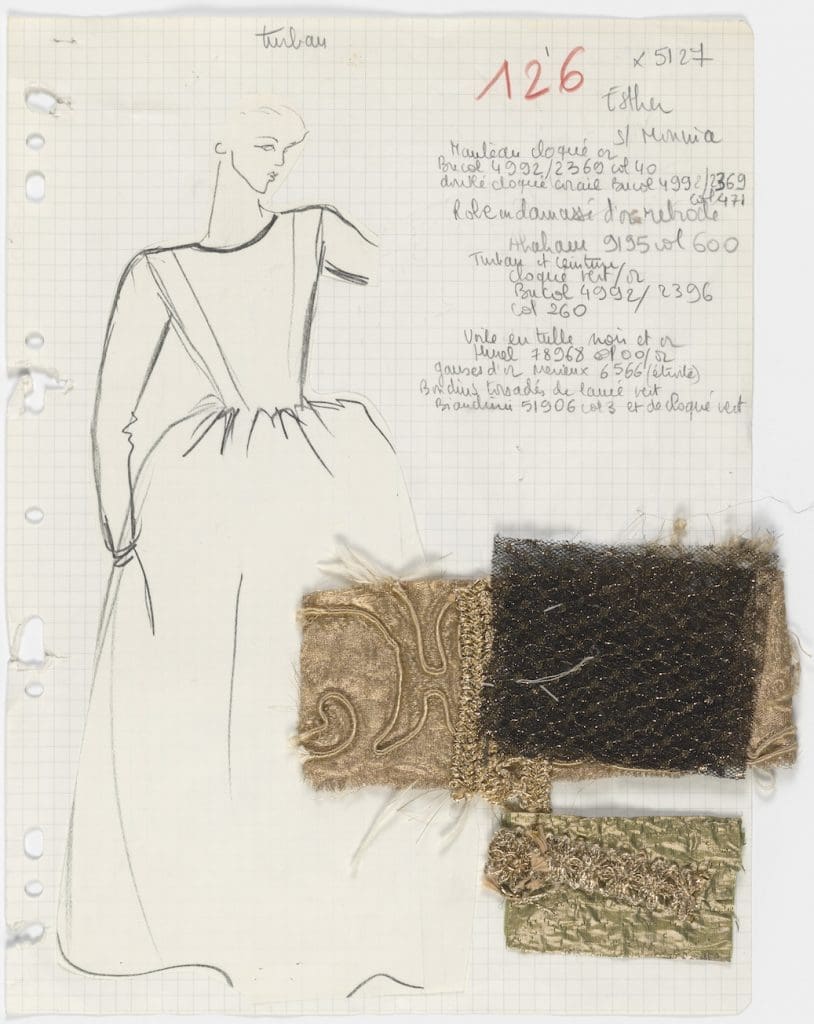 turban
126
x 5127
Esther
s/ Mounia
Manteau cloqué or
Bucol 4992/2369 col 40
doublé cloqué corail Bucol 4992/2369
col 471
Robe en damassé d'or
Abraham 9195 col 600
Turban et ceinture
cloqué vert/or
Bucol 4992/2396
col 260
Voile en tulle noir et or
Hurel 78968 col 00/or
ganses d'or 6566 (étroite)
torsadés de lamé vert
51906 col 3 et de cloqué vert